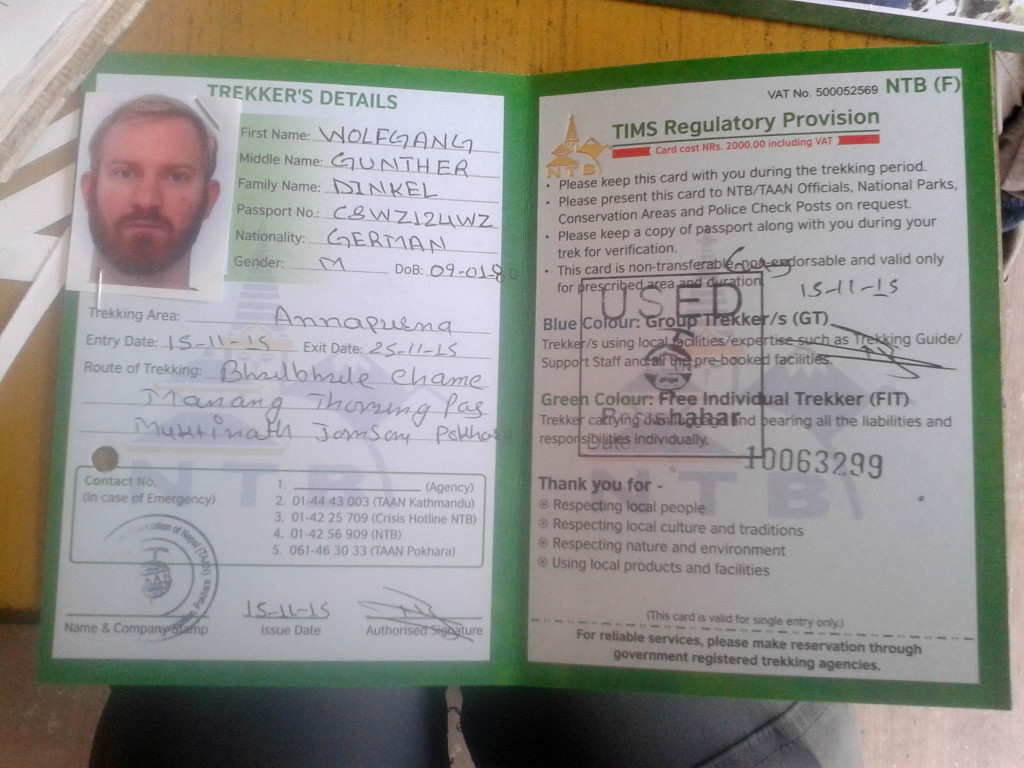 TREKKER'S DETAILS
First Name: WOLFGANG
Middle Name: GUNTHER
Family Name: DINKEL
Passport No.: C8WZ124WZ
Nationality: GERMAN
Gender: M DoB: 09-01-80
Trekking Area: Annapurna
Entry Date: 15-11-15 Exit Date: 25-11-15
Route of Trekking: Bhulbhule Chame
Manang Thorong Pas
Muktinath Jomsom Pokhara
NTB
Contact No.
(In case of Emergency)
1. (Agency)
2. 01-44 43 003 (TAAN Kathmandu)
3. 01-42 25 709 (Crisis Hotline NTB)
4. 01-42 56 909 (NTB)
5. 061-46 30 33 (TAAN Pokhara)
of Nepal (TAAN)
TAAN
15-11-15
Name & Company Stamp Issue Date Authorised Signature
VAT No. 500052569 NTB (F)
NTB
TIMS Regulatory Provision
Card cost NRs. 2000.00 including VAT
• Please keep this card with you during the trekking period.
• Please present this card to NTB/TAAN Officials, National Parks,
Conservation Areas and Police Check Posts on request.
• Please keep a copy of passport along with you during your
trek for verification.
• This card is non-transferable, non-endorsable and valid only
for prescribed area and duration.
15-11-15
USED
Blue Colour: Group Trekker/s (GT)
Trekker/s using local facilities/expertise such as Trekking Guide/
Support Staff and all the pre-booked facilities.
Green Colour: Free Individual Trekker (FIT)
Trekker carrying own luggage and bearing all the liabilities and
responsibilities individually.
Date
10063299
NTB
Thank you for -
Respecting local people
Respecting local culture and traditions
Respecting nature and environment
Using local products and facilities
(This card is valid for single entry only.)
For reliable services, please make reservation through
government registered trekking agencies.